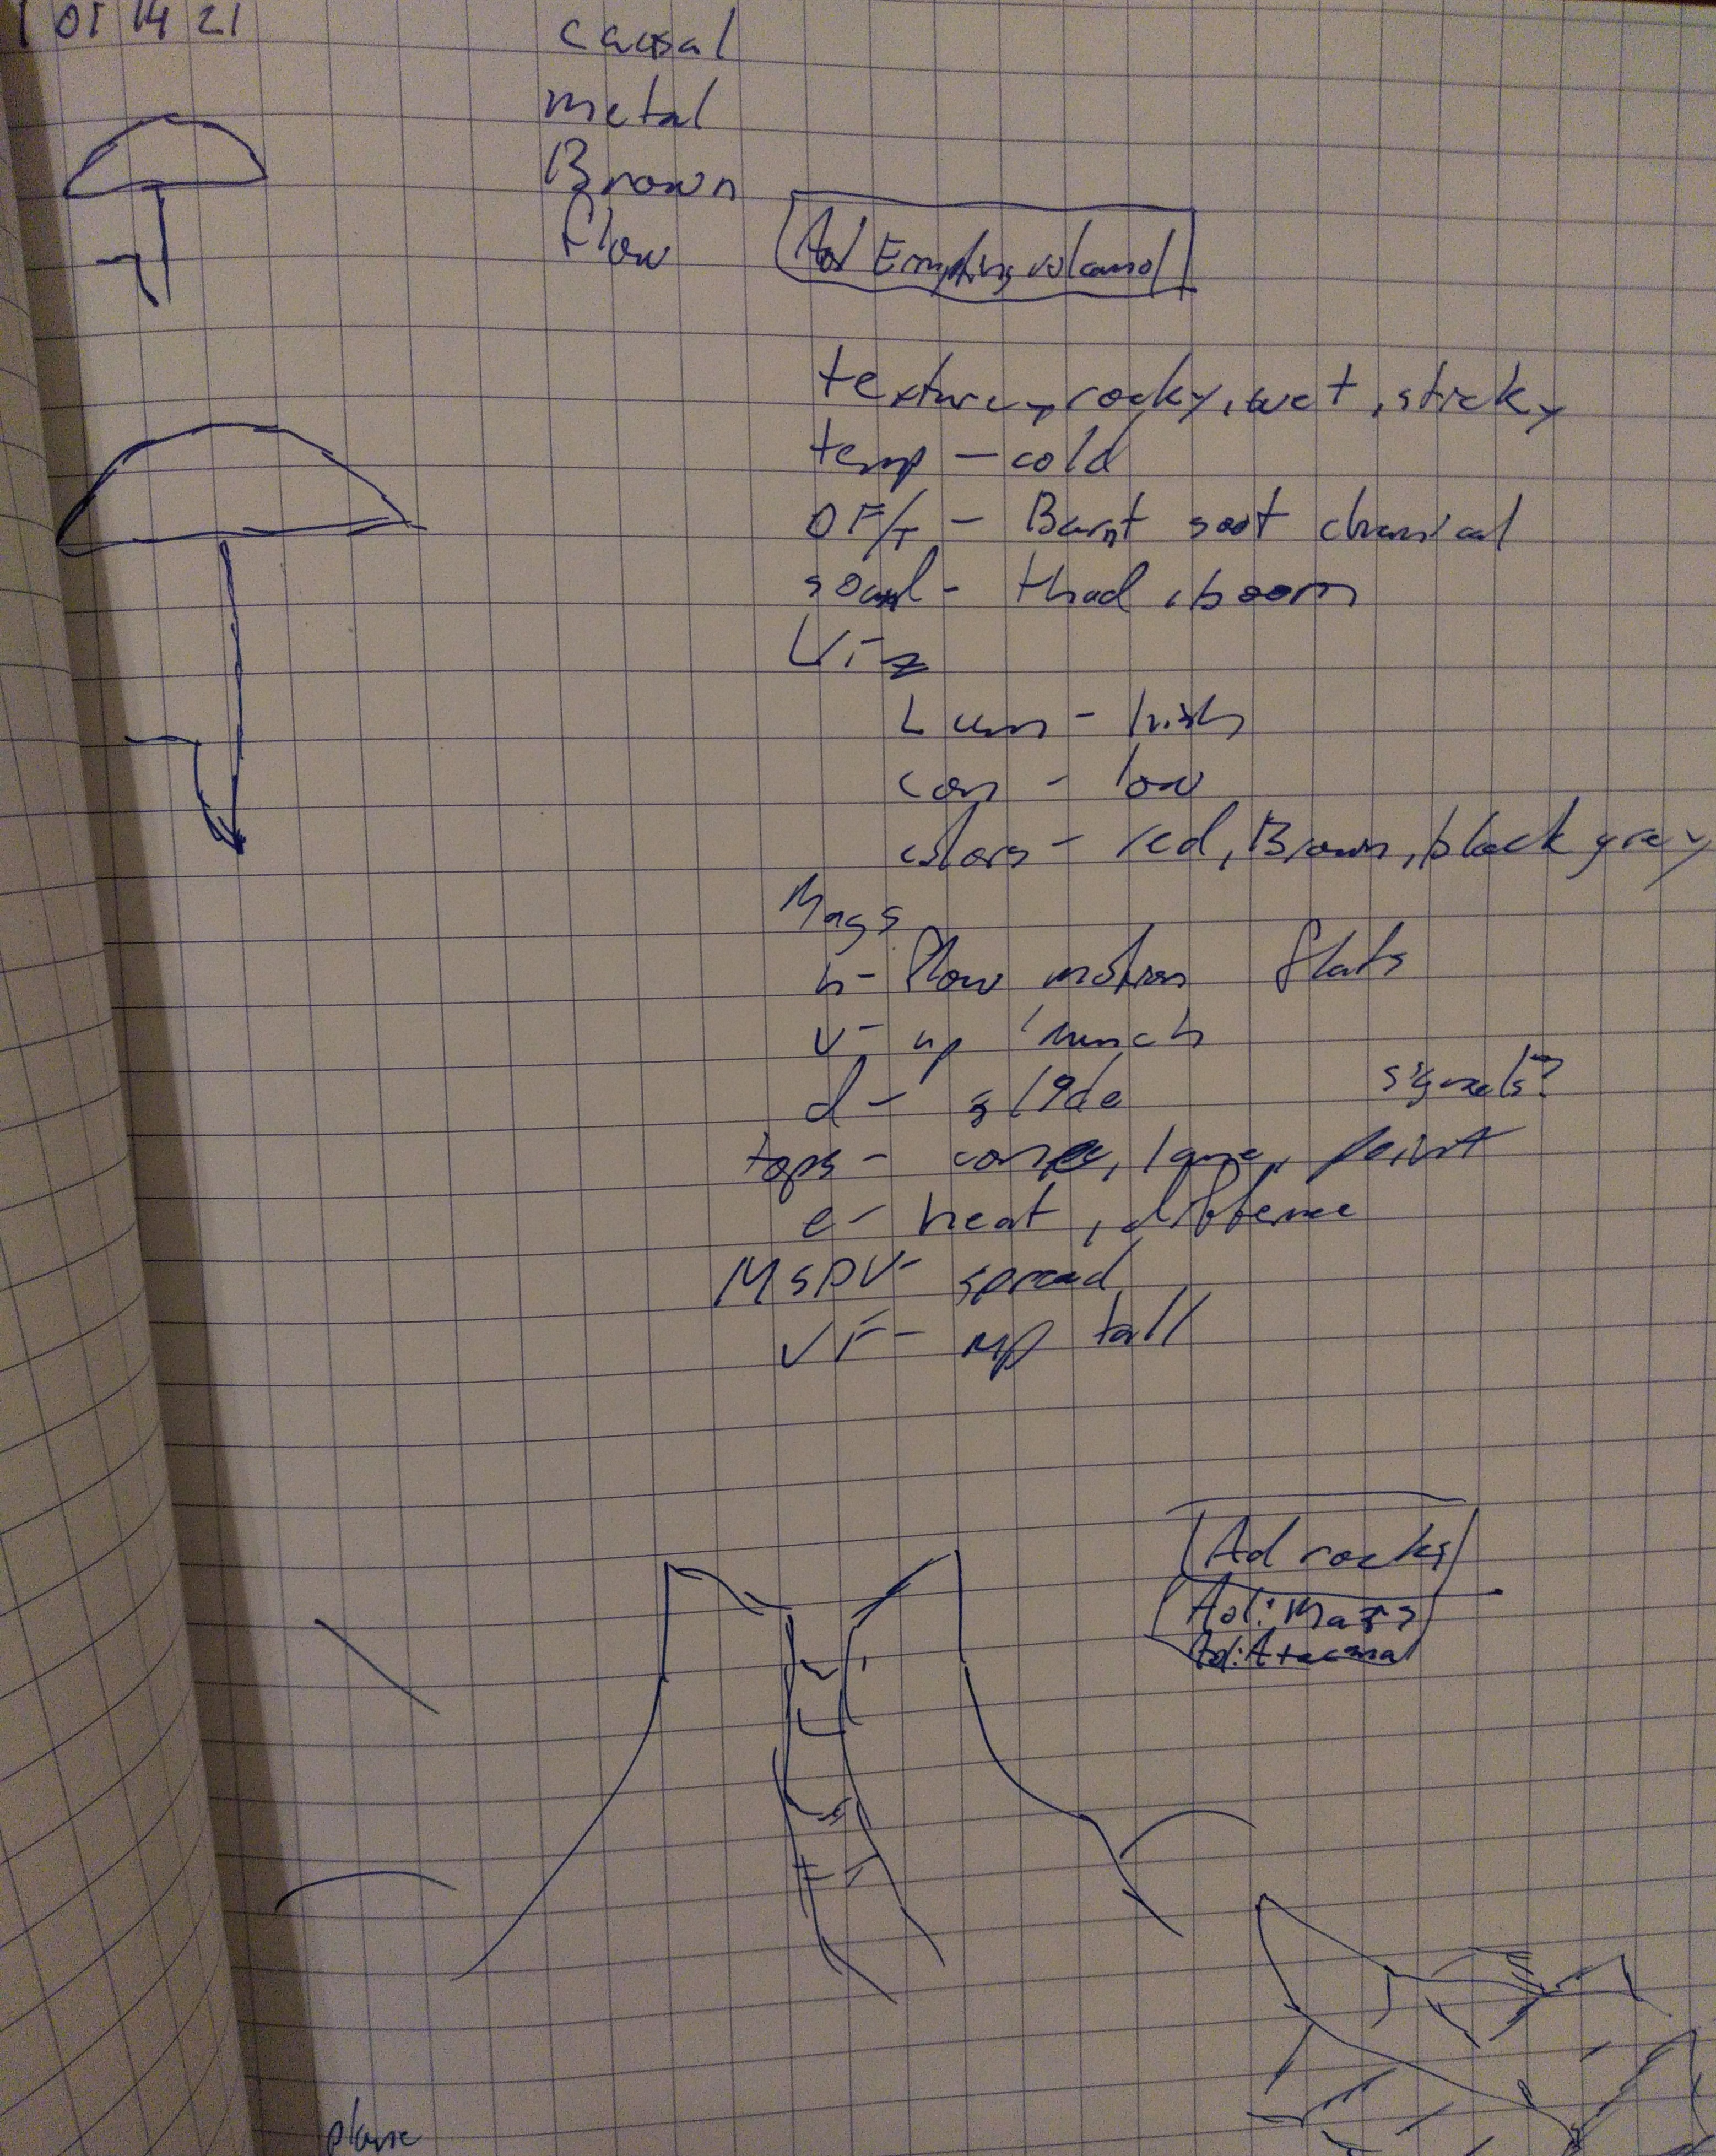 01 14 21
causal
metal
Brown
flow
volcano
texture, rocky, wet, sticky
temp - cold
OF/T - Burnt soot chemical
sound - thud, boom
Viz
Lum - high
con - low
colors - red, Brown, black grey
Mags
h - flow motion flats
v - up
d - slide
signals?
tops - cone, point
e - heat,
MSPV - spread
VF - up tall
Ad rocks
Ad: Mars
plane